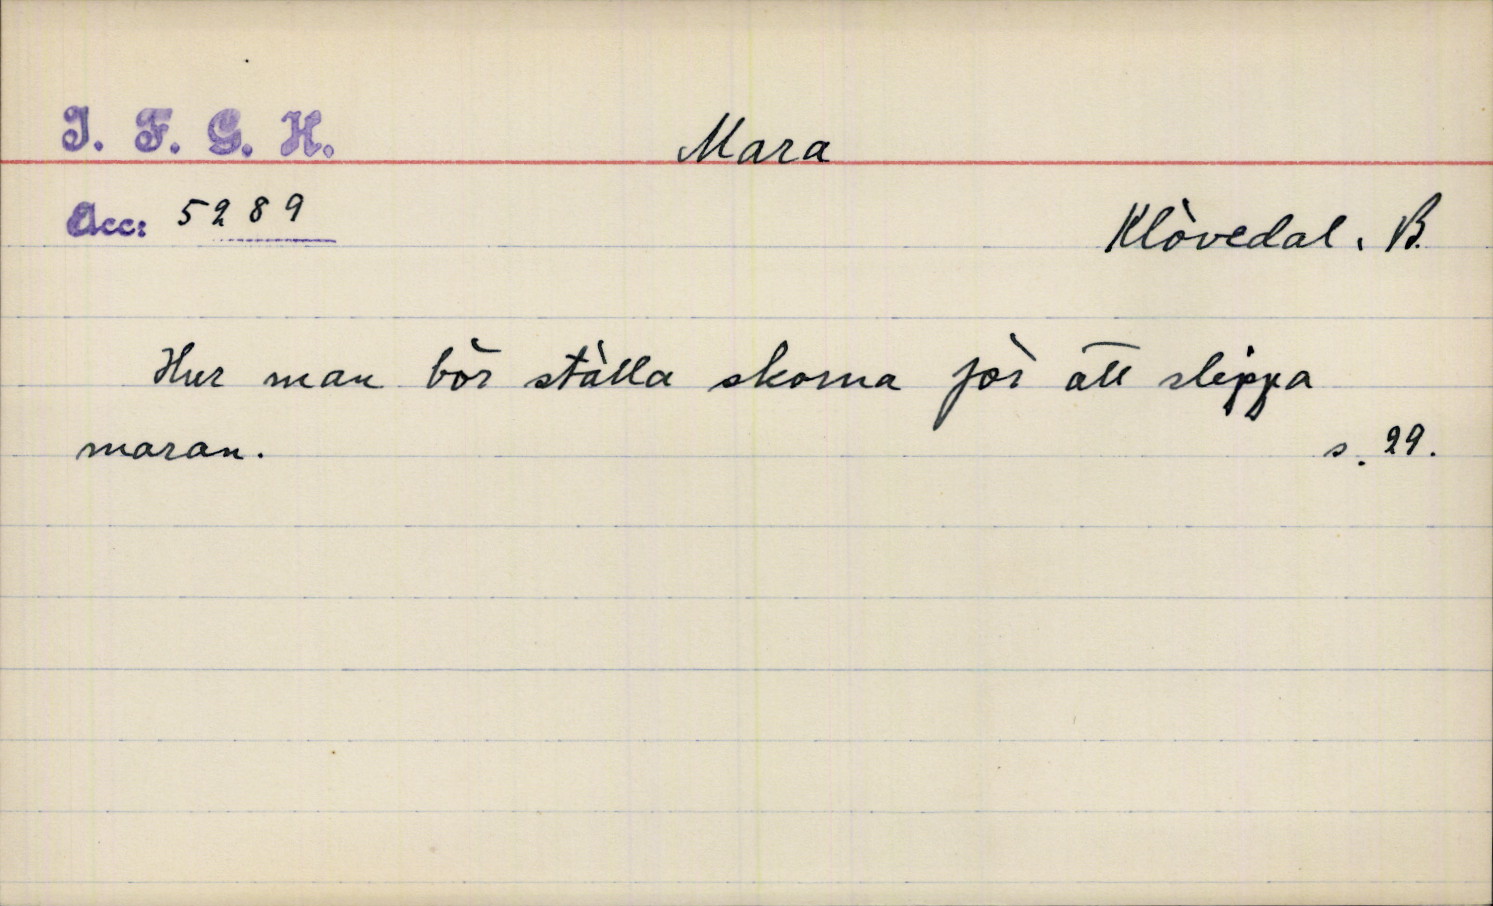 I. F. G. H.
Mara
Acc: 5289
Klövedal. B.
Hur man bör ställa skorna för att slippa
maran.
s. 29.